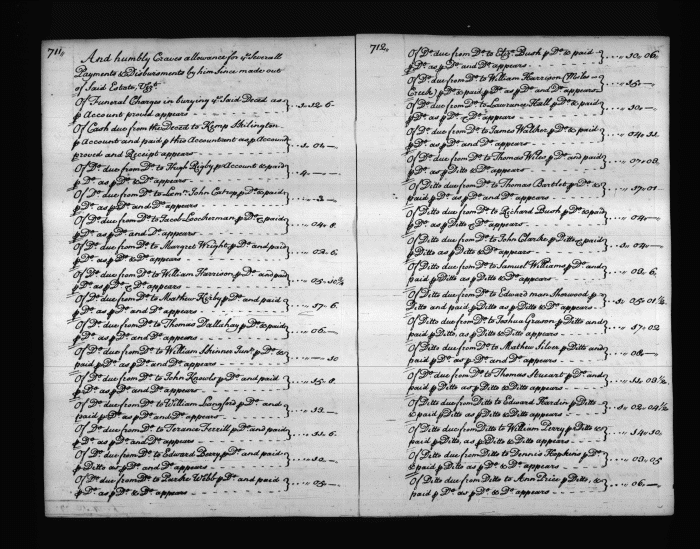 711,,
And humbly Craves allowance for ye. Severall
Payments & Disbursments by him Since made out
of Said Estate, Vizt.
Of Funeral Charges in burying ye. Said Decd. as
p Account proved appears - - } .. 1.. 12.. 6.
Of Cash due from the Decd. to Kemp Skilington
p Account and paid p this Accountant as p Account
proved and Receipt appears - - } .. 1.. 01 —
Of Do. due from Do. to Hugh Rigby p Account & paid
p Do. as p Do. & Do. appears - - } .. 4 — —
Of Do. due from Do. to John p Do. & paid
p Do. as p Do. and Do. appears - -
Of Do. due from Do. to Jacob Loockerman p Do. & paid
p Do. as p Do. and Do. appears - - } .... 04.. 8.
Of Do. due from Do. to Margret Wright p Do. and paid
p Do. as p Do. & Do. appears - - } .... 02.. 6.
Of Do. due from Do. to William Harrison p Do. and paid
p Do. as p Do. & Do. appears - - } .... 05.. 10½
Of Do. due from Do. to Mathew Kirby p Do. and paid
p Do. as p Do. and Do. appears - - } .... 17.. 6.
Of Do. due from Do. to Thomas Dallahay p Do. & paid
p Do. as p Do. and Do. appears - - } .... 06 —
Of Do. due from Do. to William Skinner Junr. p Do. &
paid p Do. as p Do. and Do. appears - - } .... — .. 10
Of Do. due from Do. to John Knowls p Do. and paid
p Do. as p Do. and Do. appears - - } .... 15.. 8.
Of Do. due from Do. to William Langford p Do. and
paid p Do. as p Do. and Do. appears - - } .... 13 —
Of Do. due from Do. to Terance Ferrill p Do. and paid
p Do. as p Do. and Do. appears - - } .... 11.. 6.
Of Do. due from Do. to Edward Berry p Do. and paid
p Ditto as p Do. and Do. appears - - } .... 12 —
Of Do. due from Do. to Burke Webb p Do. and paid
p Do. as p Do. & Do. appears - - } .... 05 —
712,,
Of Do. due from Do. to Elizr. Bush p Do. & paid
p Do. as p Do. and Do. appears - - } .... 10.. 06.
Of Do. due from Do. to William Harrison (Miles
Creek) p Do. & paid p Do. as p Do. and Do. appears } .... 15 —
Of Do. due from Do. to Lawrance Hall p Do. & paid
p Do. as p Do. and Do. appears - - } .... 10 —
Of Do. due from Do. to James Walker p Do. & paid
p Do. as p Do. and Do. appears - - } .... 04.. 11
Of Do. due from Do. to Thomas Wiles p Do. and paid
p Do. as p Ditto & Do. appears - - } .... 07.. 08.
Of Ditto due from Do. to Thomas Bartlet p Do. &
paid p Do. as p Do. & Do. appears - - } .... 17.. 01 —
Of Ditto due from Do. to Richard Bush p Do. & paid
p Do. as p Ditto & Do. appears - - } .... 04 —
Of Ditto due from Do. to John Clarke p Ditto & paid
p Ditto as p Ditto & Do. appears - - } .. 1.. 04 —
Of Ditto due from Do. to Samuel Williams p Do. and
paid p Ditto as p Ditto & Do. appears - - } .... 08.. 6.
Of Ditto due from Do. to Edward man Sherwood p
Ditto and paid p Ditto as p Ditto & Do. appears } .. 1.. 05.. 01½.
Of Ditto due from Do. to Joshua Grason p Ditto and
paid p Ditto, as p Ditto & Ditto appears - - } .... 17.. 02
Of Ditto due from Do. to Mathew Silver p Ditto and
paid p Do. as p Do. and Do. appears - - } .... 08 —
Of Ditto due from Do. to Thomas Stewart p Do. and
paid p Ditto as p Ditto & Do. appears - - } .... 11.. 03½
Of Ditto due from Do. to Edward Hardin p Ditto
& paid p Do. as p Ditto & Ditto appears - - } .. 1.. 02.. 04½
Of Ditto due from Do. to William Perry p Ditto and
paid p Ditto, as p Ditto & Do. appears - - } .... 14.. 10.
Of Ditto due from Do. to Dennis Hopkins p Do.
& paid p Ditto as p Do. & Do. appears - - } .... 03.. 05
Of Ditto due from Do. to Ann Price p Ditto, &
paid p Do. as p Do. & Do. appears - - } .... 06 —